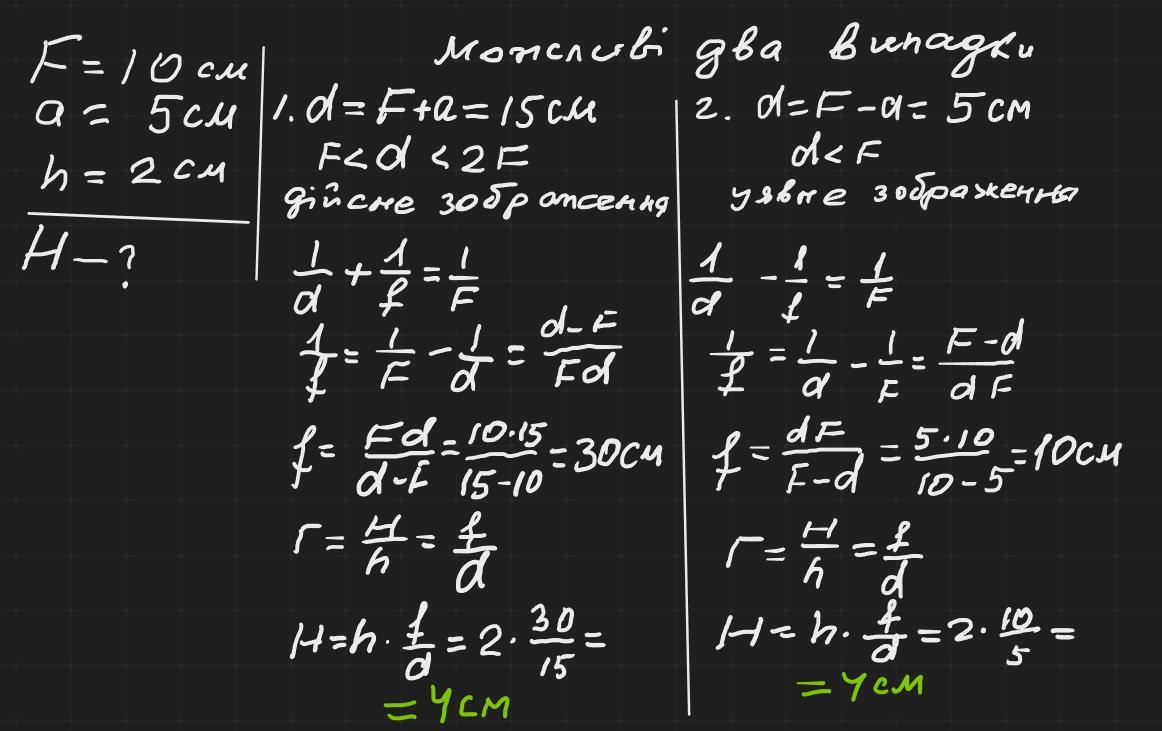 F = 10 см
a = 5 см
h = 2 см
H – ?
можливі два випадки
1. d = F + a = 15 см
F < d < 2F
дійсне зображення
1/d + 1/f = 1/F
1/f = 1/F – 1/d = (d – F)/(Fd)
f = Fd/(d – F) = 10·15/(15 – 10) = 30 см
Г = H/h = f/d
H = h · f/d = 2 · 30/15 =
= 4 см
2. d = F – a = 5 см
d < F
уявне зображення
1/d – 1/f = 1/F
1/f = 1/d – 1/F = (F – d)/(dF)
f = dF/(F – d) = 5·10/(10 – 5) = 10 см
Г = H/h = f/d
H = h · f/d = 2 · 10/5 =
= 4 см